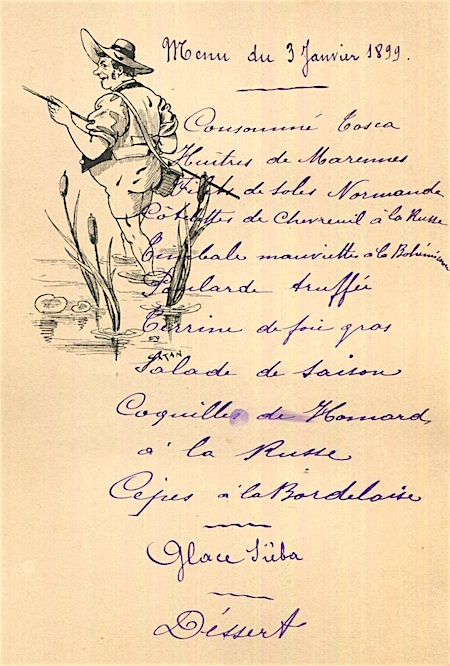 Menu du 3 Janvier 1899.
Consommé Tosca
Huîtres de Marennes
Filets de Soles Normande
Côtelettes de Chevreuil à la Russe
Timbale mauviette à la Bohémienne
Poularde truffée
Terrine de foie gras
Salade de Saison
Coquilles de Homard
à la Russe
Cèpes à la Bordelaise
Glace
Déssert